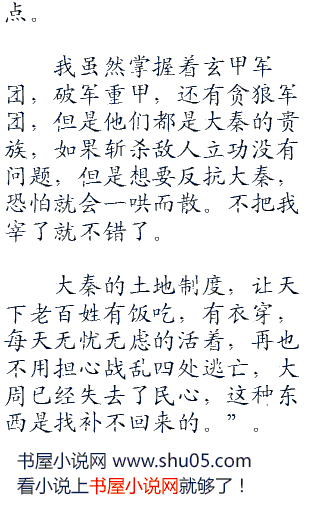 点。
我虽然掌握着玄甲军
团，破军重甲，还有贪狼军
团，但是他们都是大秦的贵
族，如果斩杀敌人立功没有
问题，但是想要反抗大秦，
恐怕就会一哄而散。不把我
宰了就不错了。
大秦的土地制度，让天
下老百姓有饭吃，有衣穿，
每天无忧无虑的活着，再也
不用担心战乱四处逃亡，大
周已经失去了民心，这种东
西是找补不回来的。”。
书屋小说网 www.shu05.com
看小说上书屋小说网就够了！